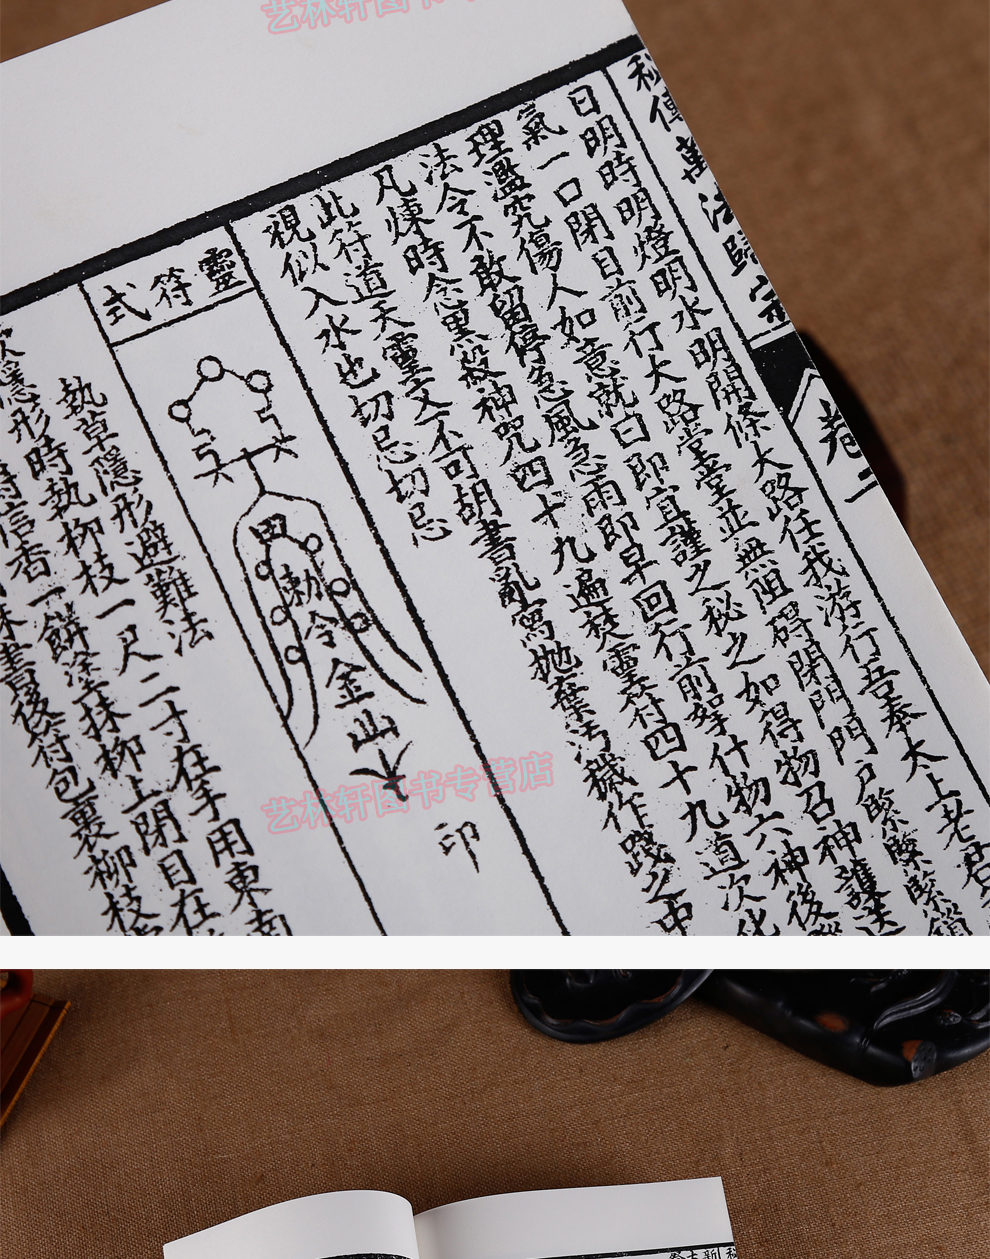 艺林轩图书专营店
秘傳萬法歸宗
卷二
日明時明燈明水明開條大路任我游行吾奉太上老君
氣一口閉目前行大路堂堂並無阻碍閉門門戶緊緊緊鎖
理濫究傷人如意就曰即宜謹之秘之如得物召神護送
法令不敢留停急風急雨即早回行前拏什物六神後
凡煉時念黑殺神咒四十九遍焚靈符四十九道次化
此符道天靈文不可胡書亂寫抛棄汚穢作踐之中
視似入水也切忌切忌
靈符式
勅令金山
印
執草隱形避難法
隱形時執柳枝一尺二寸在手用東南
信香一餅塗抹柳上閉目在
書後符包裹柳枝
艺林轩图书专营店